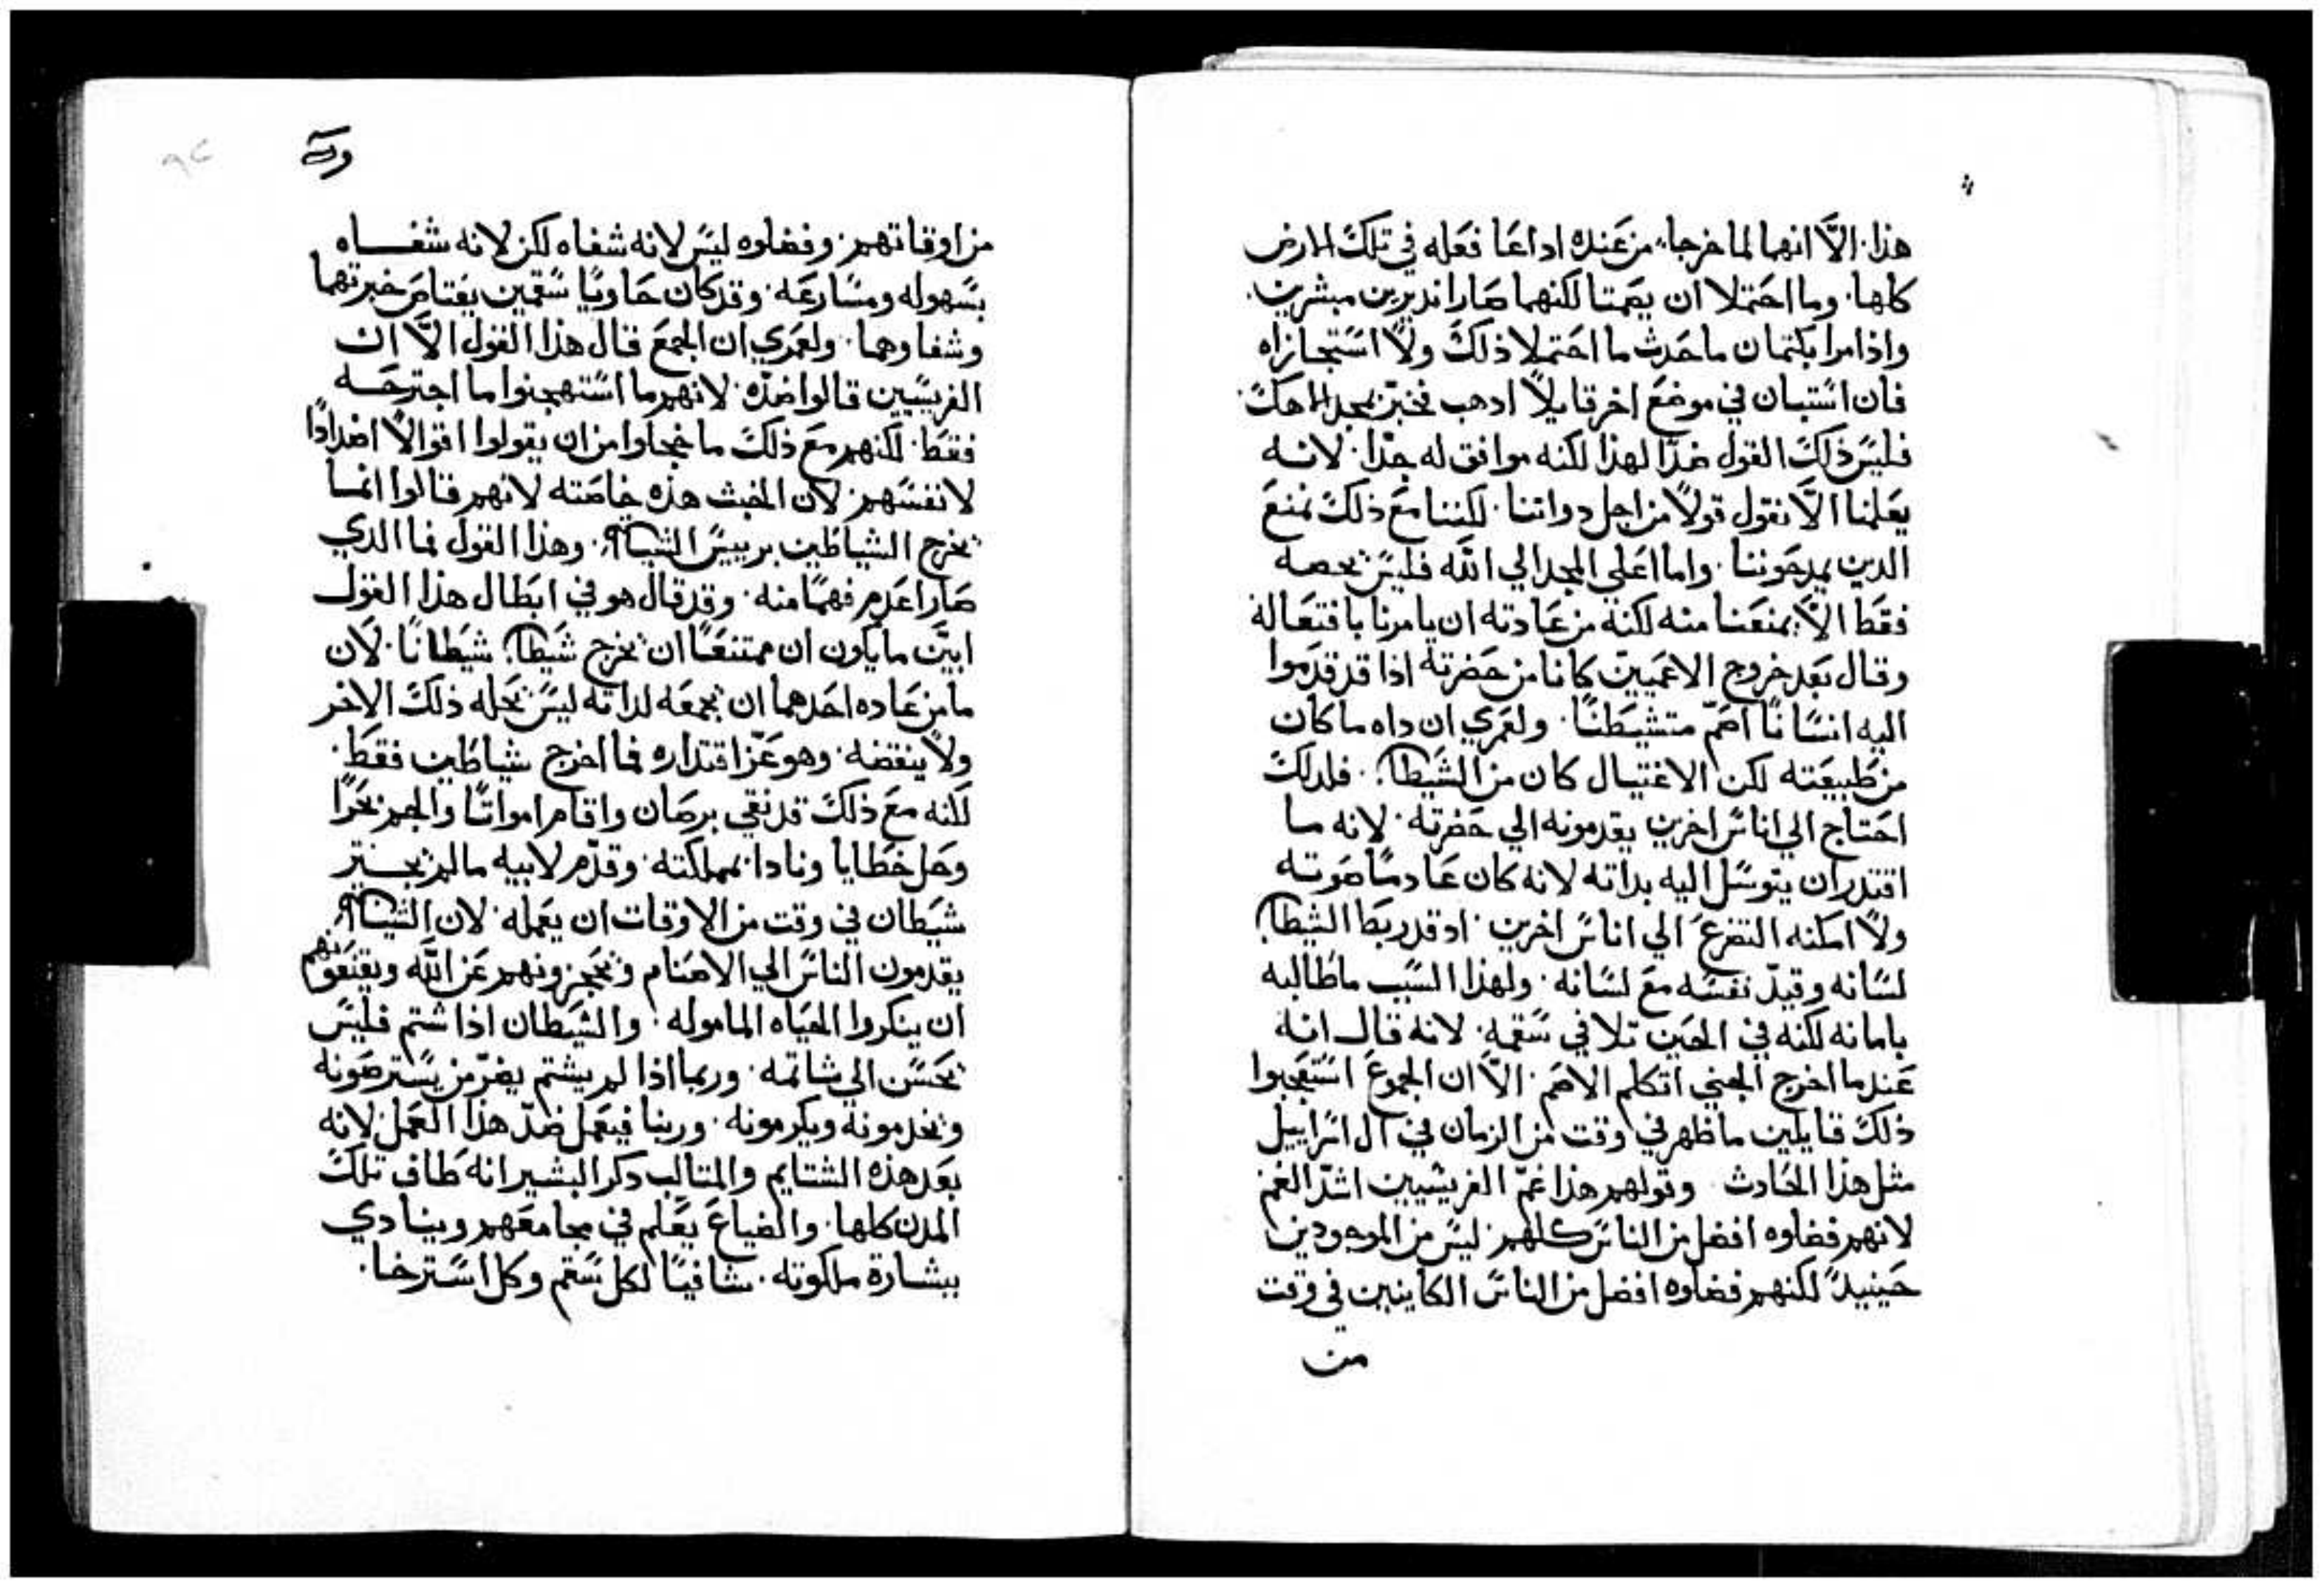 هذا. الاَّ انهما لما خرجا من عنده اداعا فعله في تلك الارض
كلها. وما احتملا ان يصمتا لكنهما صارا نديرين مبشرين.
واذ امرا بكتمان ما حدث ما احتملا ذلك ولا استجازاه
فان استبان في موضع اخر قايلاً ادهب فخبّر بمجد الاهك.
فليس ذلك القول ضدّا لهذا لكنه موافق له جدّا. لانه
يعلمنا الاَّ نقول قولاً من اجل دواتنا. لكننا مع ذلك نمنع
الدين يمدحوننا. واما اعلي المجد الي الله فليس بحصه
فقط الاَّ يمنعنا منه لكنه من عادته ان يامرنا بافتعاله
وقال بعد خروج الاعميين كانا من حضرته اذا قد قدموا
اليه انسانًا اصمّ متشيطنًا. ولعمري ان داه ما كان
من طبيعته لكن الاغتيال كان من الشيطان. فلدلك
احتاج الي اناس اخرين يقدمونه الي حضرته. لانه ما
اقتدر ان يتوسل اليه بداته لانه كان عادمًا صوته
ولا امكنه التضرع الي اناس اخرين. اد قد ربط الشيطان
لسانه وقيدّ نفسه مع لسانه. ولهذا السبب ما طالبه
بامانه لكنه في الحين تلافي سقمه. لانه قال انه
عندما اخرج الجني اتكلم الاصم. الاَّ ان الجموع استعجبوا
ذلك قايلين ما ظهر في وقت من الزمان في ال اسراييل
مثل هذا الحادث وقولهم هذا غمّ الفريسيين اشدّ الغم
لانهم فضلوه افضل من الناس كلهم. ليس من الموجودين
حينيدً لكنهم فضلوه افضل من الناس الكاينين في وقت
من
من اوقاتهم. وفضلوه ليس لانه شفاه لكن لانه شفاه
بسهوله ومسارعه. وقد كان حاويًا سقمين يعتاص خبرتهما
وشفاوهما. ولعمري ان الجمع قال هذا القول الاَّ ان
الفريسيين قالوا ضدّه. لانهم ما استهجنوا ما اجترحه
فقط. لكنهم مع ذلك ما خجلوا من ان يقولوا اقوالاً اضدادًا
لانفسهم. لان الخبث هذه خاصته لانهم قالوا انما
يخرج الشياطين برييس الشياطين. وهذا القول فما الدي
صار اعدم فهمًا منه. وقد قال هو في ابطال هذا القول
ابيّن ما يكون ان ممتنعًا ان يخرج شيطان شيطانًا. لان
ما من عاده احدهما ان يجمعه لداته ليس يحله ذلك الاخر
ولا ينقضه. وهو عزّ اقتداره فما اخرج شياطين فقط.
لكنه مع ذلك قد نقي برصان واقام امواتًا والجم بحرًا
وحل خطايا ونادا بمملكته. وقدّم لابيه ما لم يجسر
شيطان في وقت من الاوقات ان يعمله. لان الشياطين
يقدمون الناس الي الاصنام ويحجزونهم عن الله ويقنعونهم
ان ينكروا الحياه الماموله. والشيطان اذا شتم فليس
يحسن الي شاتمه. وربما اذا لم يشتم يضرّ من يسترضونه
ويخدمونه ويكرمونه. وربنا فيعمل ضدّ هذا العمل لانه
بعد هذه الشتايم والمتالب دكر البشير انه طاف تلك
المدن كلها. والضياع يعلم في مجامعهم وينادي
ببشارة ملكوته. شافيًا لكل سقم وكل استرخا.